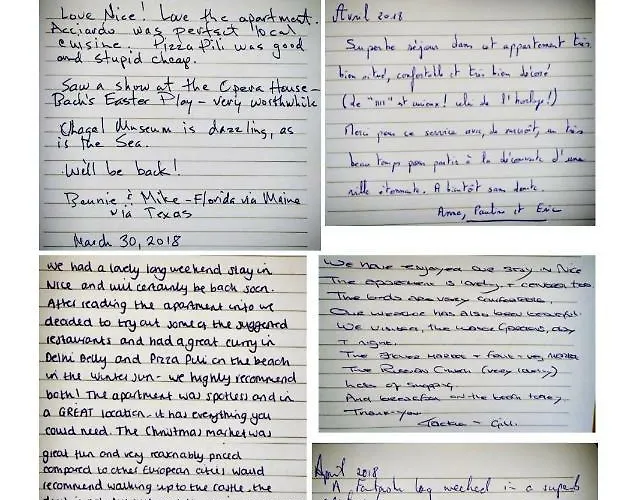 Love Nice! Love the apartment.
Acciardo was perfect local
cuisine. Pizza Pili was good
and stupid cheap.
Saw a show at the Opera House -
Bach's Easter Play - very worthwhile
Chagal Museum is dazzling, as
is the Sea.
We'll be back!
Bonnie & Mike - Florida via Maine
via Texas
March 30, 2018
Avril 2018
Superbe séjour dans cet appartement très
bien situé, confortable et très bien décoré
(de "mm" et curieux! celui de l'horloge!)
Merci pour ce service avec, de surcroît, un très
beau temps pour partir à la découverte d'une
ville étonnante. A bientôt sans doute.
Anne, Pauline et Eric
We had a lovely long weekend stay in
Nice and will certainly be back soon.
After reading the apartment info we
decided to try out some of the suggested
restaurants and had a great curry in
Delhi Belly and Pizza Pili on the beach
in the winter sun - we highly recommend
both! The apartment was spotless and in
a GREAT location - it has everything you
could need. The Christmas market was
great fun and very reasonably priced
compared to other European cities. Would
recommend walking up to the castle, the
We have enjoyed our stay in Nice
The apartment is lovely + central too.
The beds are very comfortable.
Our weather has also been beautiful.
We visited, the Monte Gardens, day
+ night.
The Flower Market + Fruit + veg Market
The Russian Church (very lovely)
lots of shopping,
And breakfast on the beach today.
Thank-you
Jackie - Gill.
April 2018
A Fantastic long weekend in a superb